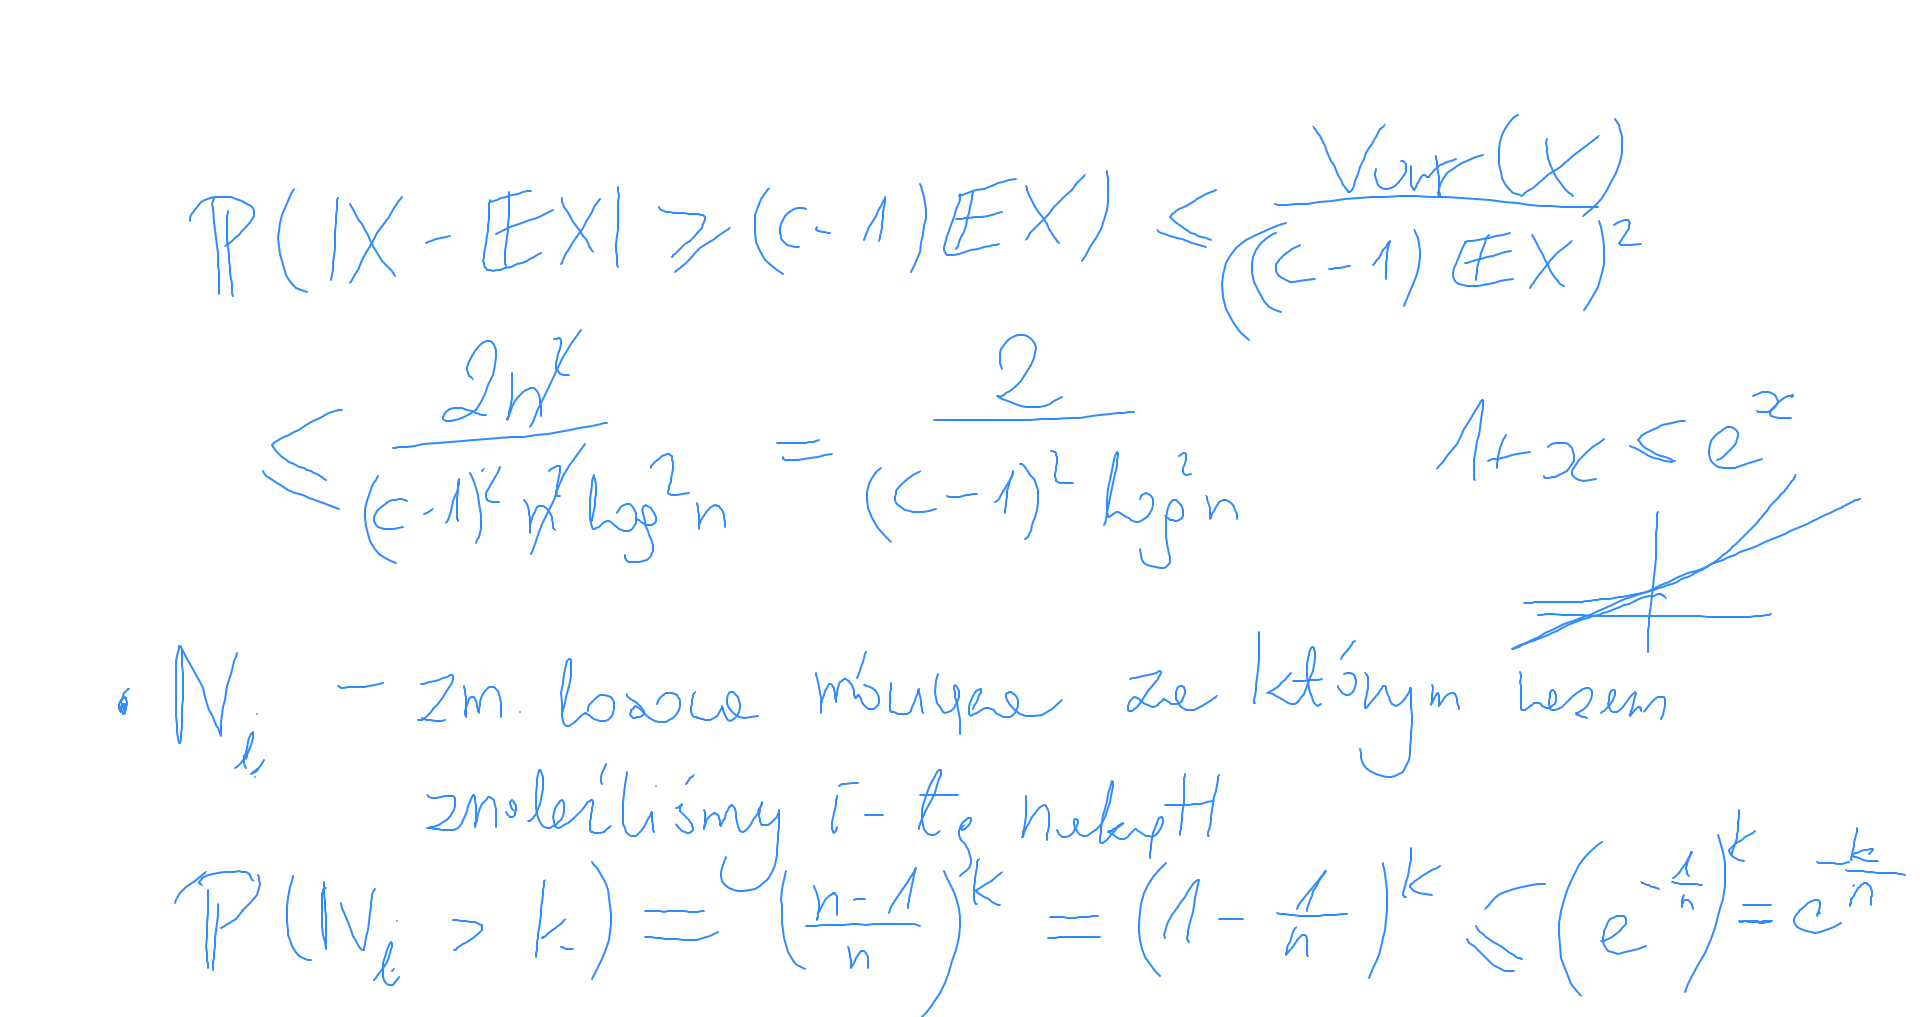 P(|X - EX| ⩾ (c-1) EX) ≤ Var(X) / ((c-1) EX)²
≤ 2n² / (c-1)² n² log² n = 2 / (c-1)² log² n
1+x ≤ eˣ
• N_i - zm. losowa mówiąca za którym razem
znaleźliśmy i-tą nakrętkę
P(N_i > k) = ((n-1)/n)^k = (1 - 1/n)^k ≤ (e^(-1/n))^k = e^(-k/n)